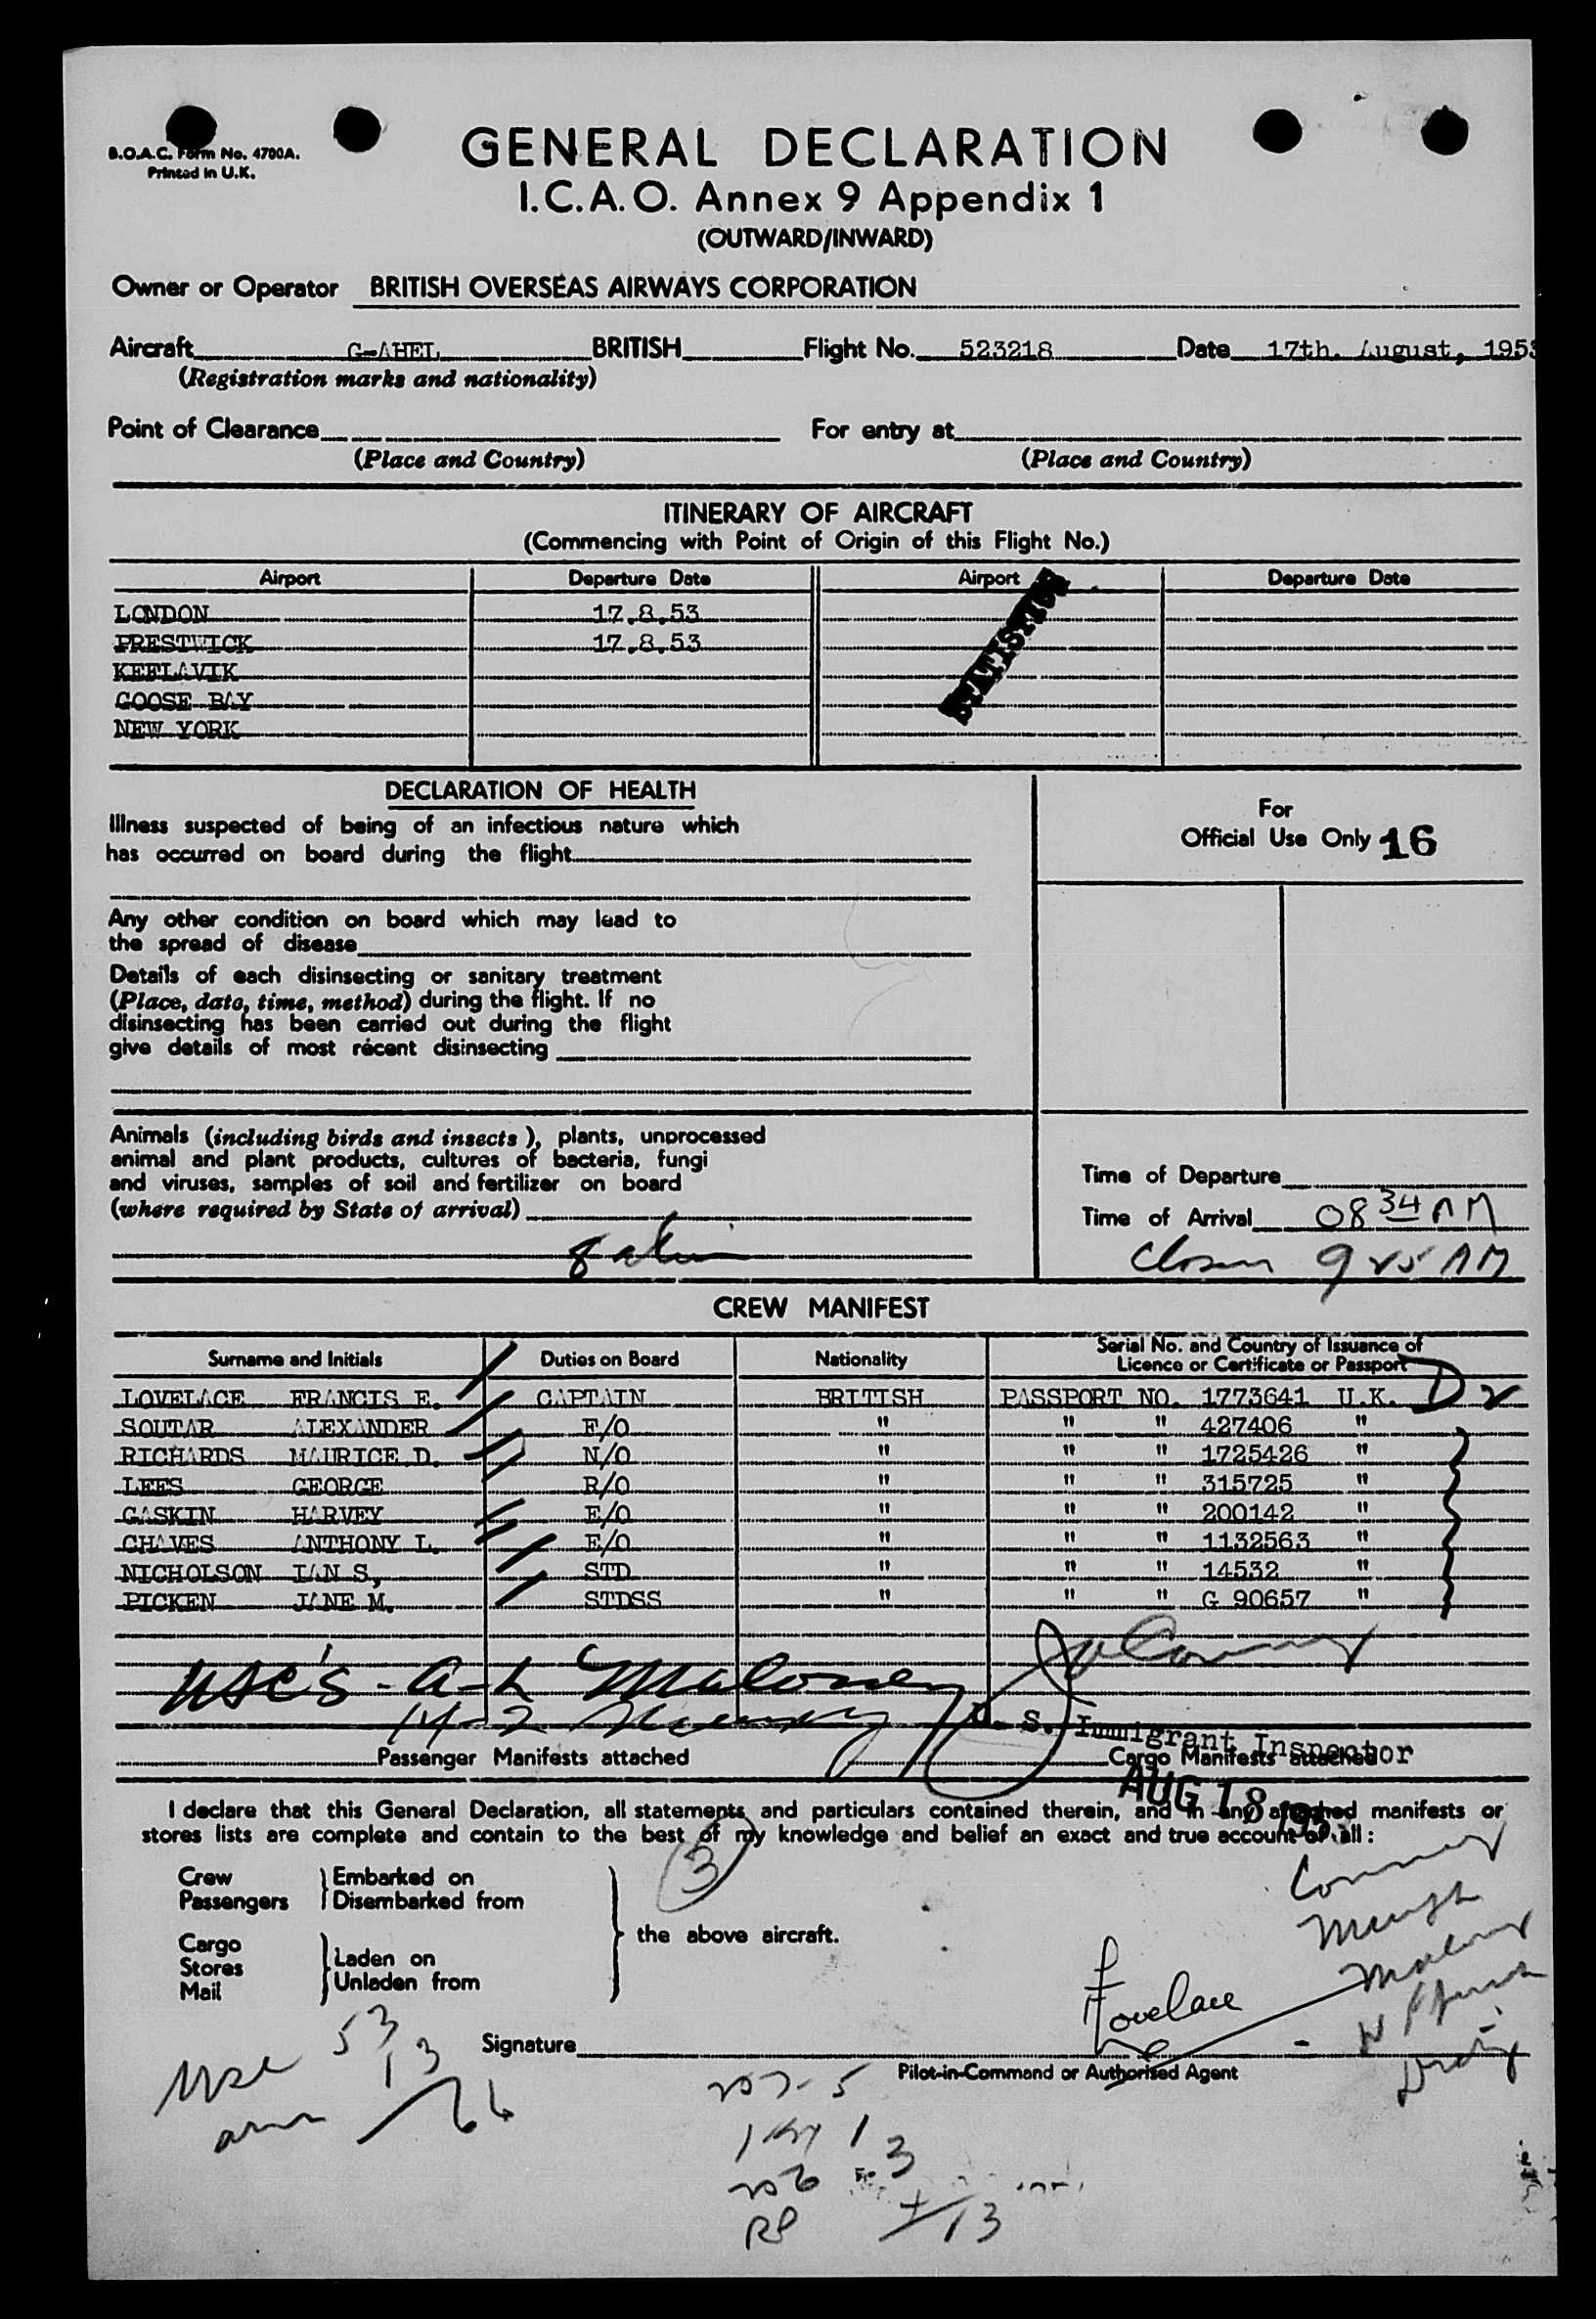 B.O.A.C. Form No. 4700A.
Printed in U.K.
GENERAL DECLARATION
I.C.A.O. Annex 9 Appendix 1
(OUTWARD/INWARD)
Owner or Operator BRITISH OVERSEAS AIRWAYS CORPORATION
Aircraft G-AHEL BRITISH Flight No. 523218 Date 17th. August, 1953
(Registration marks and nationality)
Point of Clearance For entry at
(Place and Country) (Place and Country)
ITINERARY OF AIRCRAFT
(Commencing with Point of Origin of this Flight No.)
Airport Departure Date Airport Departure Date
LONDON 17.8.53
PRESTWICK 17.8.53
KEFLAVIK
GOOSE BAY
NEW YORK
STATISTICS
DECLARATION OF HEALTH
Illness suspected of being of an infectious nature which
has occurred on board during the flight
Any other condition on board which may lead to
the spread of disease
Details of each disinsecting or sanitary treatment
(Place, date, time, method) during the flight. If no
disinsecting has been carried out during the flight
give details of most récent disinsecting
For
Official Use Only 16
Animals (including birds and insects), plants, unprocessed
animal and plant products, cultures of bacteria, fungi
and viruses, samples of soil and fertilizer on board
(where required by State of arrival)
Time of Departure
Time of Arrival 08 34 AM
9 25 AM
CREW MANIFEST
Surname and Initials Duties on Board Nationality Serial No. and Country of Issuance of
Licence or Certificate or Passport
LOVELACE FRANCIS E. CAPTAIN BRITISH PASSPORT NO. 1773641 U.K. D2
SOUTAR ALEXANDER F/O " " " 427406 "
RICHARDS MAURICE D. N/O " " " 1725426 "
LEES GEORGE R/O " " " 315725 "
GASKIN HARVEY E/O " " " 200142 "
CHAVES ANTHONY L. E/O " " " 1132563 "
NICHOLSON IAN S, STD " " " 14532 "
PICKEN JANE M. STDSS " " " G 90657 "
USC's - A-L Maloney
U. S. Immigrant Inspector
Passenger Manifests attached Cargo Manifests attached
AUG 18 195
I declare that this General Declaration, all statements and particulars contained therein, and in any attached manifests or
stores lists are complete and contain to the best of my knowledge and belief an exact and true account of all:
3
Crew Embarked on
Passengers Disembarked from
the above aircraft.
Cargo Laden on
Stores Unladen from
Mail
Lovelace
Signature
Pilot-in-Command or Authorised Agent
USC 53
13
66
207-5
1
206 3
RP 13